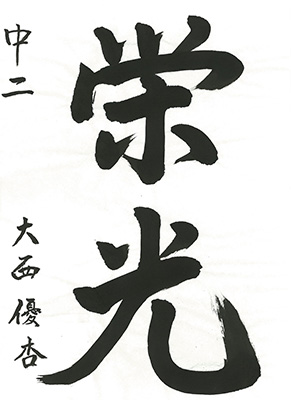 栄光
中二
大西優杏